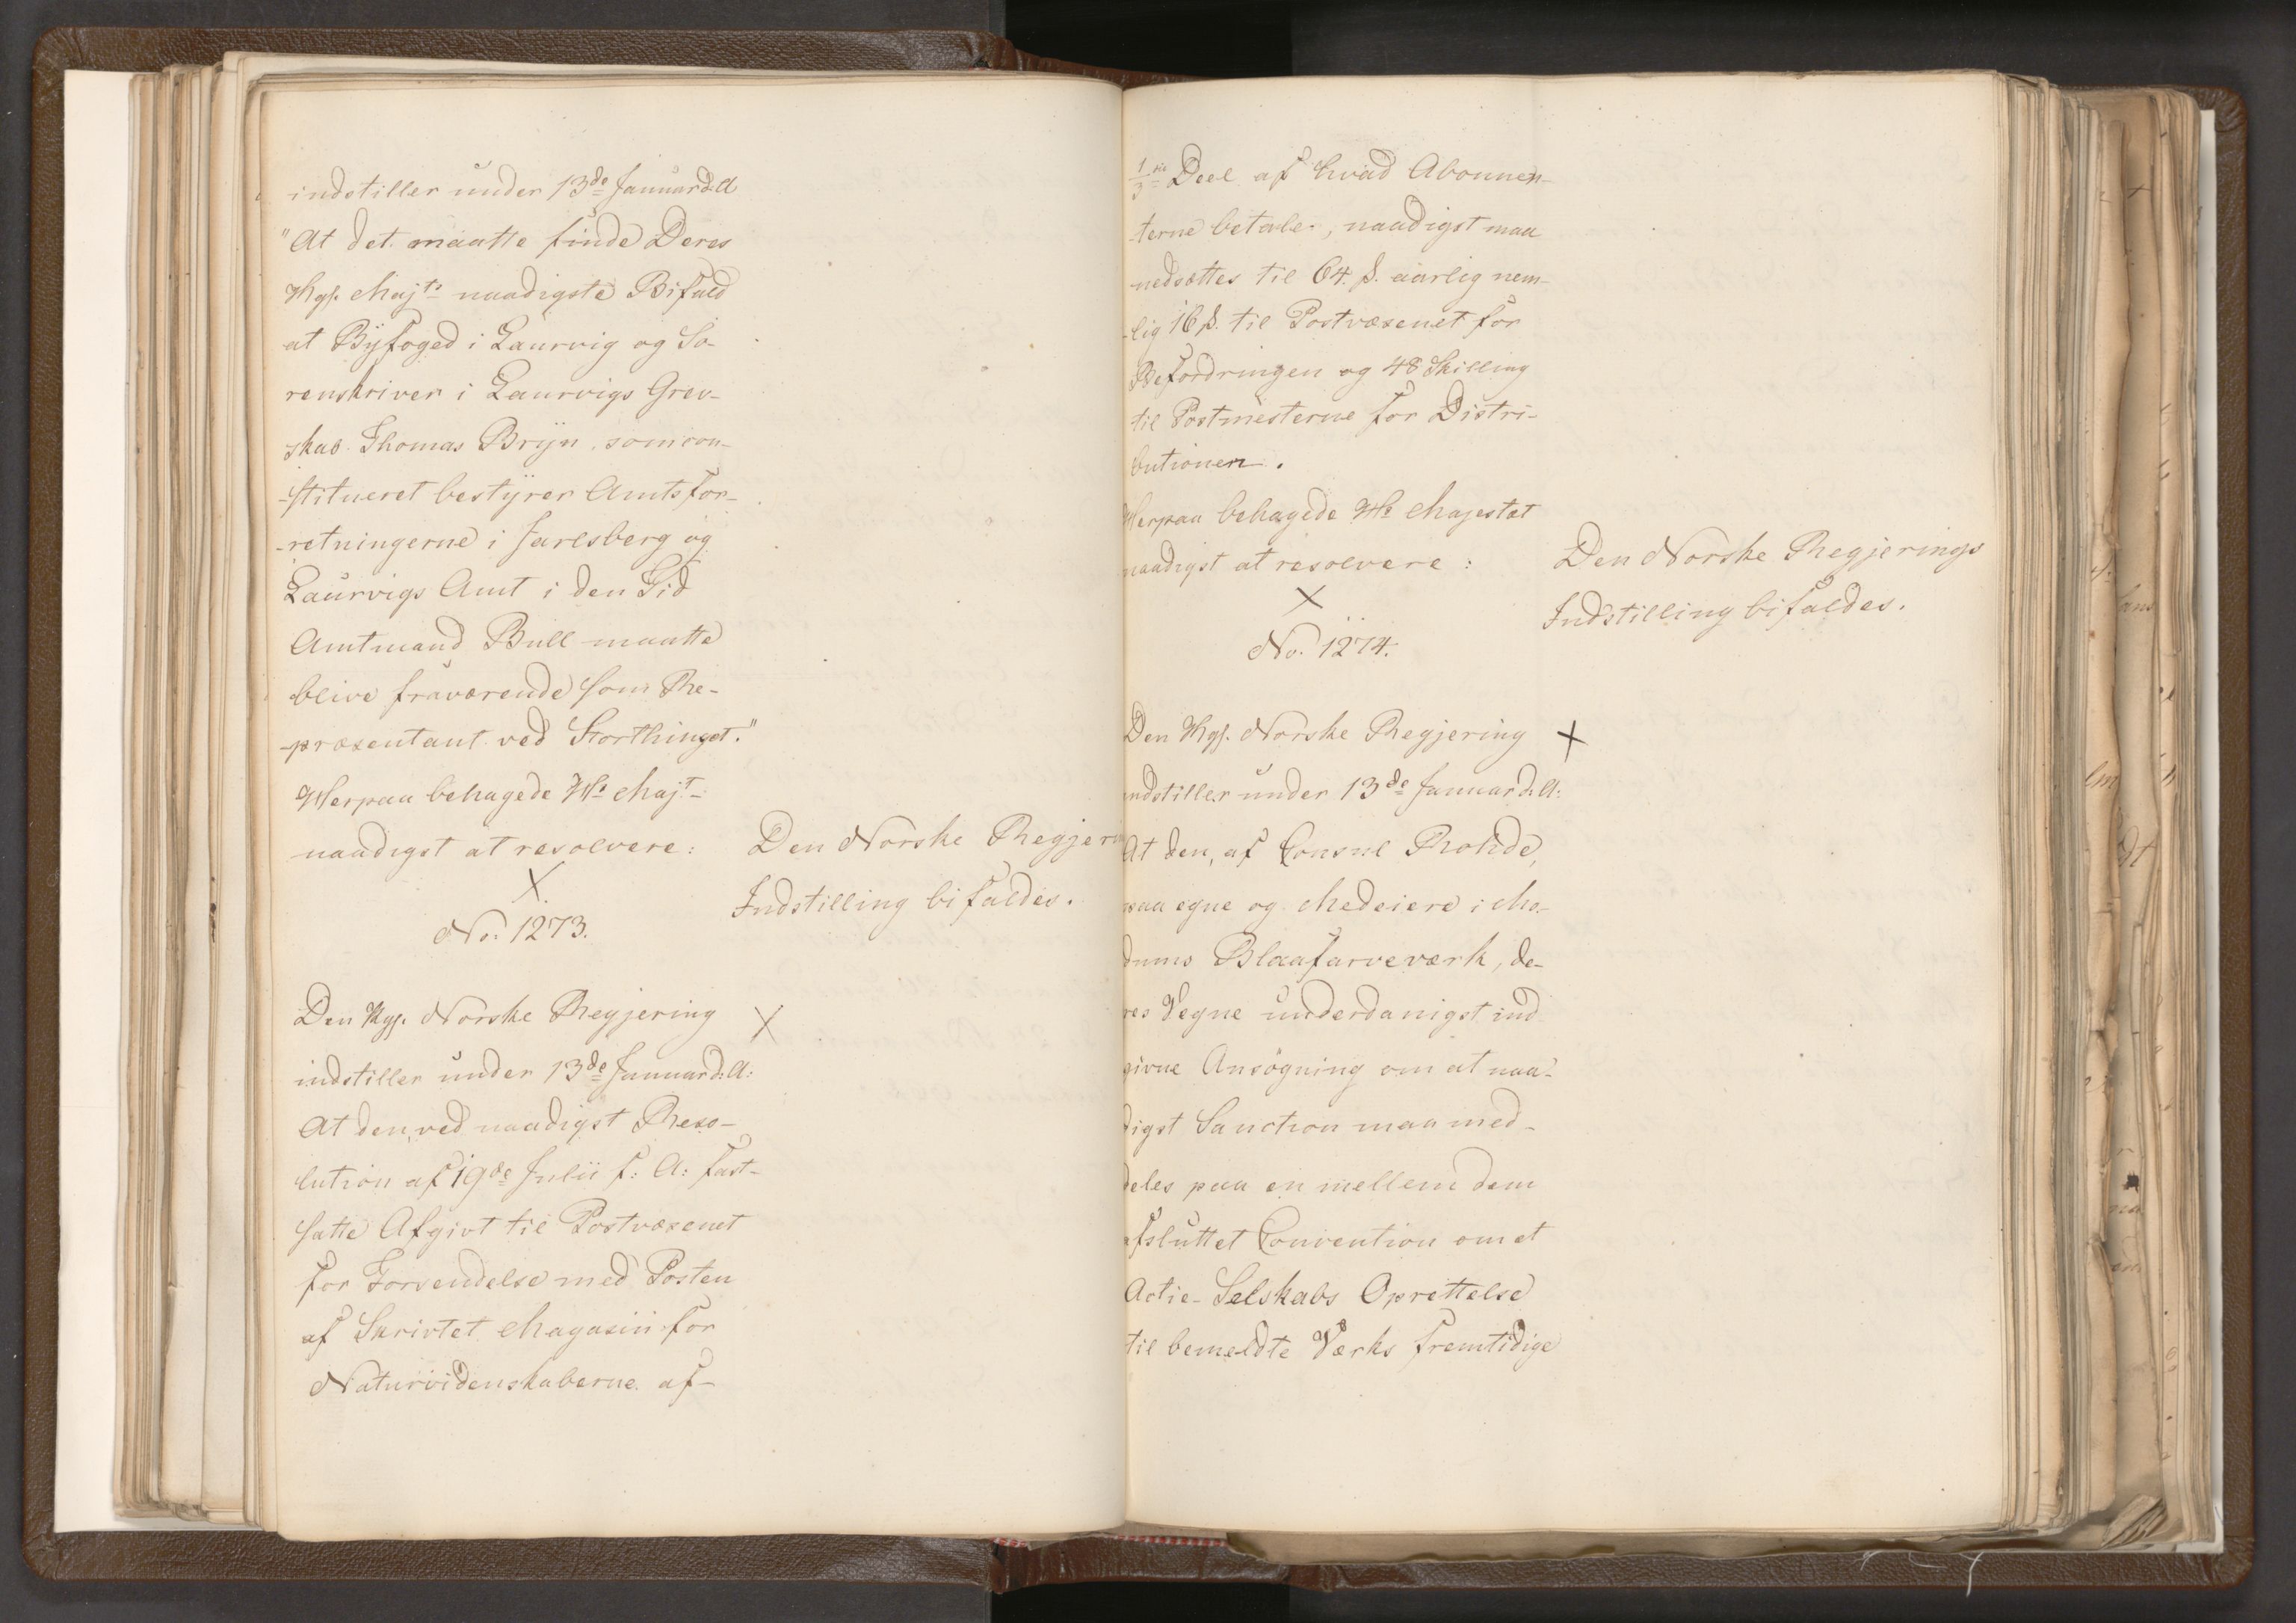 indstiller under 13de Januar d. A
"At det maatte finde Deres
Kgl. Majts naadigste Bifald
at Byfoged i Laurvig og So-
renskriver i Laurvigs Grev-
skab Thomas Bryn, som con-
-stitueret bestyrer Amtsfor-
-retningerne i Jarlsberg og
Laurvigs Amt i den Tid
Amtmand Bull maatte
blive fraværende som Re-
-præsentant ved Storthinget."
Herpaa behagede Hs Majt
naadigst at resolvere:
Den Norske Regjer
Indstilling bifaldes.
X
No. 1273.
Den Kgl. Norske Regjering X
indstiller under 13de Januar d: A:
At den, ved naadigst Reso-
lution af 19de Julii f: A: fast-
satte Afgivt til Postvæsenet
for Forsendelse med Posten
af Skrivtet Magasin for
Naturvidenskaberne af
1/3die Deel af hvad Abonnen-
-terne betale, naadigst maa
nedsættes til 64 ß. aarlig nem-
-lig 16 ß. til Postvæsenet for
Befordringen og 48 Skilling
til Postmesterne for Distri-
butionen.
Herpaa behagede Hs Majestæt
naadigst at resolvere:
Den Norske Regjerings
Indstilling bifaldes.
X
No. 1274.
Den Kgl. Norske Regjering X
indstiller under 13de Januar d: A:
At den, af Consul Rohde,
paa egne og Medeiere i Mo-
dums Blaafarveværk, de-
res Vegne underdanigst ind
givne Ansögning om at naa-
digst Sanction maa med-
deles paa en mellem dem
afsluttet Convention om et
Actie-Selskabs Oprettelse
til bemeldte Værks fremtidige